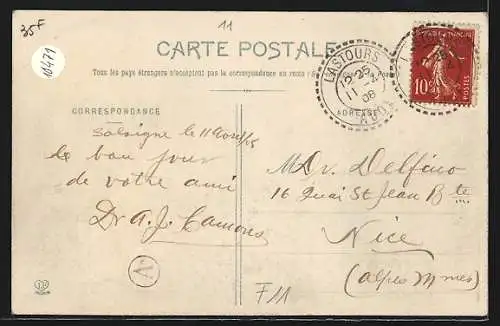 35F
11
10471
CARTE POSTALE
Tous les pays étrangers n'acceptent pas la correspondance au recto
CORRESPONDANCE
ADRESSE
LASTOURS
12-25
11
08
AUDE
10
Salsigne le 11
le bon jour
de votre ami
Dr A. J. Camons
Mr Delfino
16 Quai St Jean Bte
Nice
(Alpes Mmes)
A
F11